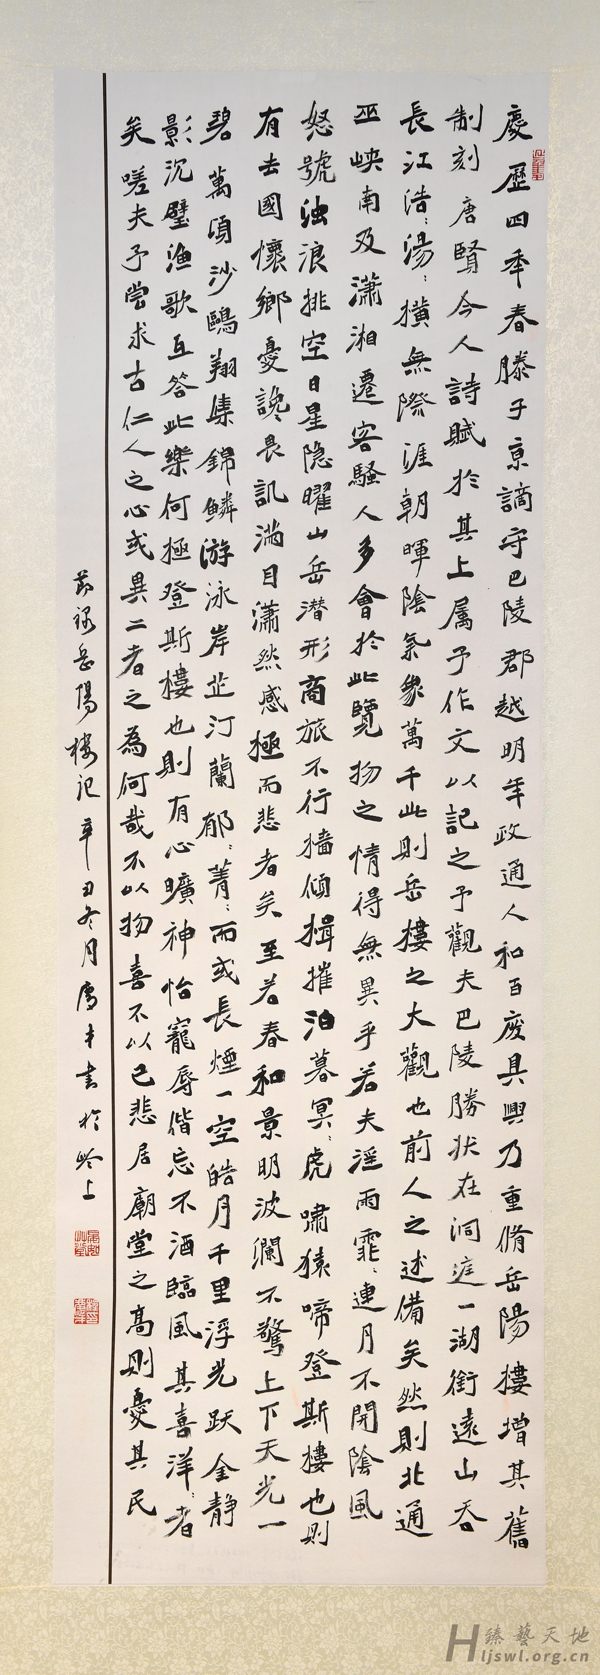 慶歷四年春滕子京謫守巴陵郡越明年政通人和百廢具興乃重脩岳陽樓增其舊
制刻唐賢今人詩賦於其上属予作文以記之予觀夫巴陵勝狀在洞庭一湖銜遠山吞
長江浩:湯:橫無際涯朝暉陰氣象萬千此則岳樓之大觀也前人之述備矣然則北通
巫峽南及瀟湘遷客騷人多會於此覽物之情得無異乎若夫淫雨霏:連月不開陰風
怒號浊浪排空日星隐曜山岳潜形商旅不行檣傾揖摧泊暮冥:虎嘯猿啼登斯樓也則
有去國懷鄉憂讒畏訊満目瀟然感極而悲者矣至若春和景明波瀾不驚上下天光一
碧萬頃沙鷗翔集錦鱗游泳岸芷汀蘭郁:菁:而或長煙一空皓月千里浮光跃金静
影沉璧漁歌互答此樂何極登斯樓也則有心曠神怡寵辱偕忘不酒臨風其喜洋:者
矣嗟夫予嘗求古仁人之心或異二者之為何哉不以物喜不以己悲居廟堂之高則憂其民
節錄岳陽樓記辛丑冬月書於上
臻藝天地
Hljswl.org.cn